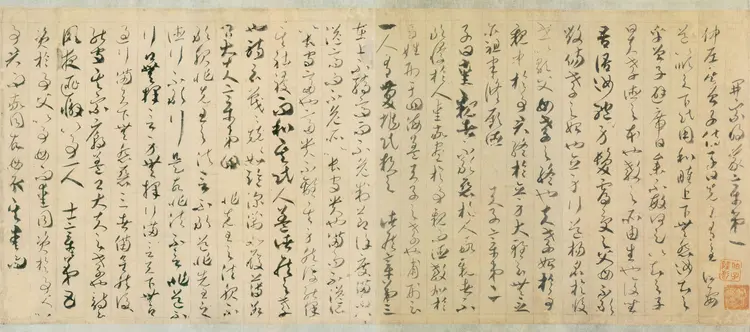 開宗明義章第一
仲尼居曾子侍子曰先王有至德要
道以順天下民用和睦上下無怨汝知之
乎曾子避席曰參不敏何足以知之子
曰夫孝德之本也教之所由生也復坐
吾語汝身體髮膚受之父母不敢
毀傷孝之始也立身行道揚名於後
世以顯父母孝之終也夫孝始於事
親中於事君終於立身大雅云無念
爾祖聿脩厥德 天子章第二
子曰愛親者不敢惡於人敬親者不
敢慢於人愛敬盡於事親而德教加於
百姓刑于四海蓋天子之孝也甫刑云
一人有慶兆民賴之 諸侯章第三
在上不驕高而不危制節謹度滿而不
溢高而不危所以長守貴也滿而不溢所
以長守富也富貴不離其身然後能保
其社稷而和其民人蓋諸侯之孝
也詩云戰戰兢兢如臨深淵如履薄冰
卿大夫章第四 非先王之法服不
敢服非先王之法言不敢道非先王之
德行不敢行是故非法不言非道不
行口無擇言身無擇行言滿天下無口
過行滿天下無怨惡三者備矣然後
能守其宗廟蓋卿大夫之孝也詩云
夙夜匪懈以事一人 士章第五
資於事父以事母而愛同資於事父以
事君而敬同故母取其愛而